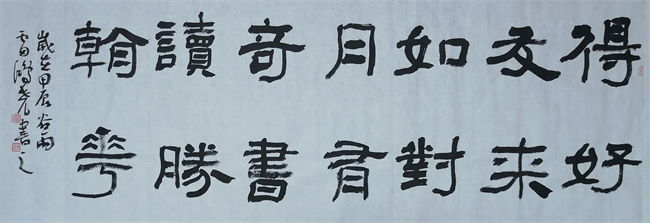 得好
友來
如對
月有
奇書
讀勝
看花
歲在甲辰谷雨
雷鴻堯書之